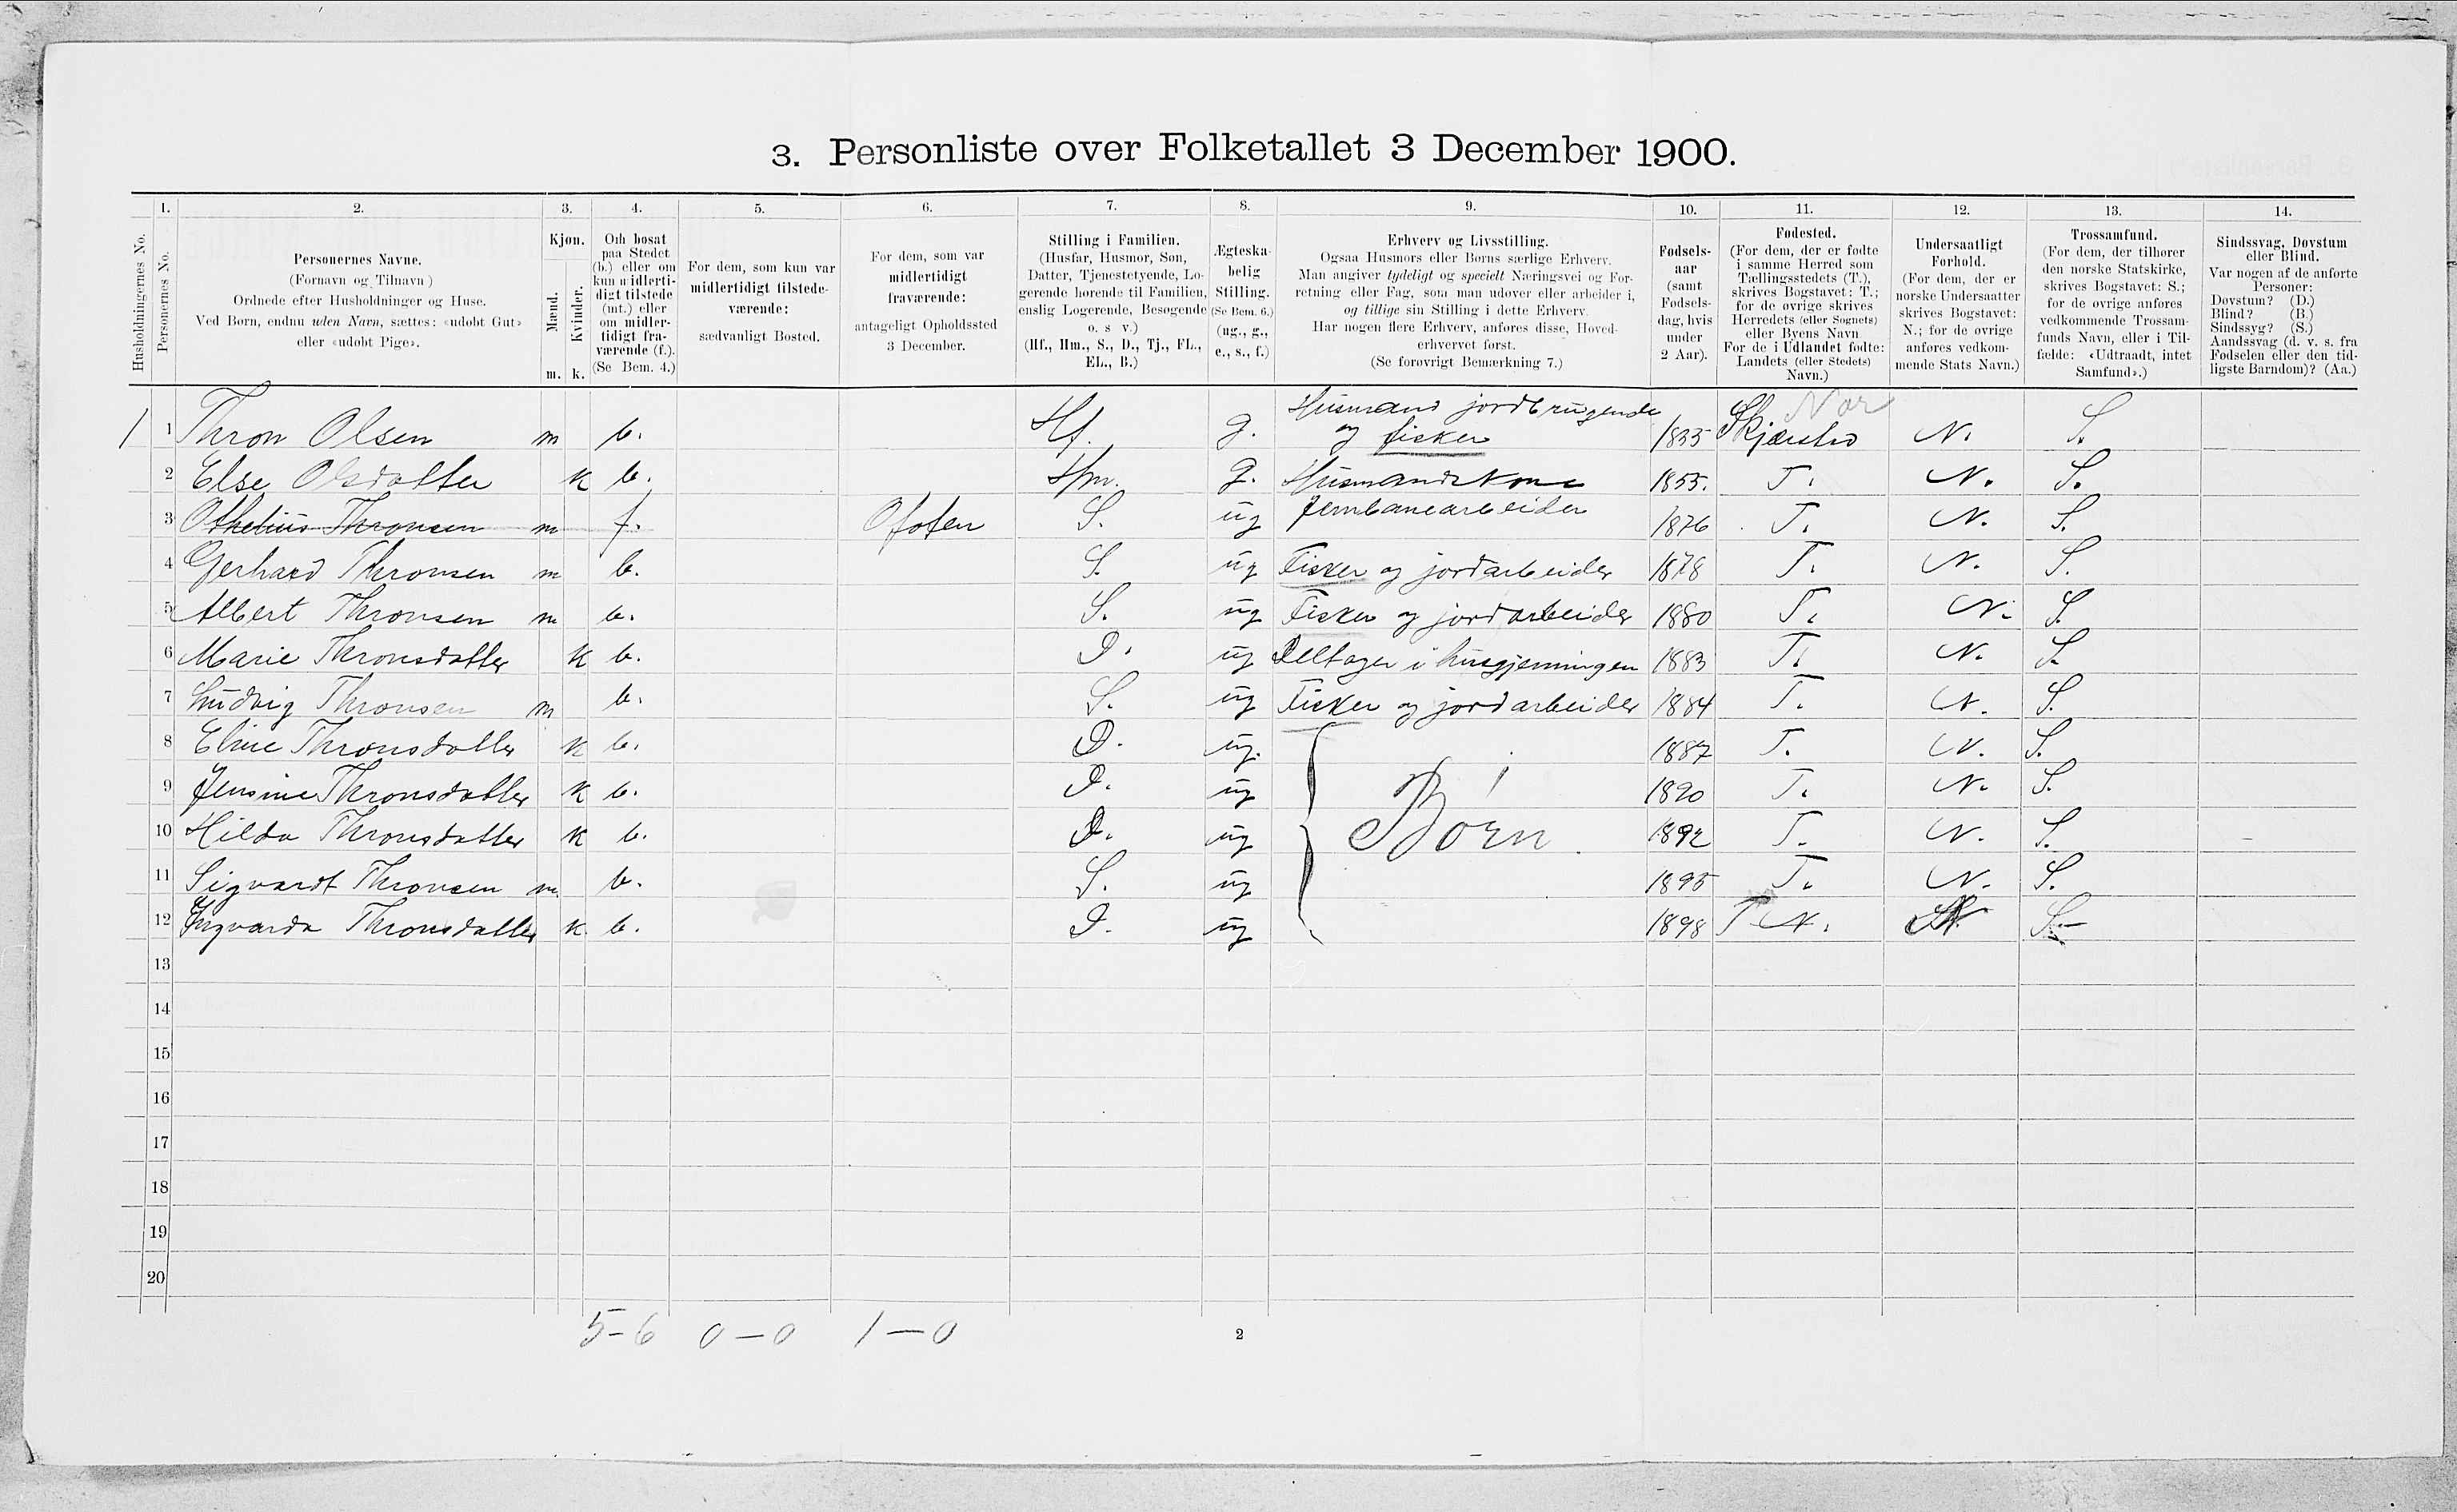 3. Personliste over Folketallet 3 December 1900.
1. 2. 3. 4. 5. 6. 7. 8. 9. 10. 11. 12. 13. 14.
Husholdningernes No.
Personernes No.
Personernes Navne.
(Fornavn og Tilnavn)
Ordnede efter Husholdninger og Huse.
Ved Børn, endnu uden Navn, sættes: «udøbt Gut»
eller «udøbt Pige».
Kjøn.
Mænd.
Kvinder.
m. k.
Om bosat
paa Stedet
(b.) eller om
kun midlerti-
digt tilstede
(mt.) eller
om midler-
tidigt fra-
værende (f.).
(Se Bem. 4.)
For dem, som kun var
midlertidigt tilstede-
værende:
sædvanligt Bosted.
For dem, som var
midlertidigt
fraværende:
antageligt Opholdssted
3 December.
Stilling i Familien.
(Husfar, Husmor, Søn,
Datter, Tjenestetyende, Lo-
gerende hørende til Familien,
enslig Logerende, Besøgende
o. s v.)
(Hf., Hm., S., D., Tj., FL.,
EL., B.)
Ægteska-
belig
Stilling.
(Se Bem. 6.)
(ug., g.,
e., s., f.)
Erhverv og Livsstilling.
Ogsaa Husmors eller Børns særlige Erhverv.
Man angiver tydeligt og specielt Næringsvei og For-
retning eller Fag, som man udøver eller arbeider i,
og tillige sin Stilling i dette Erhverv.
Har nogen flere Erhverv, anføres disse, Hoved-
erhvervet først.
(Se forøvrigt Bemærkning 7.)
Fødsels-
aar
(samt
Fødsels-
dag, hvis
under
2 Aar).
Fødested.
(For dem, der er fødte
i samme Herred som
Tællingsstedets (T.),
skrives Bogstavet: T.;
for de øvrige skrives
Herredets (eller Sognets)
eller Byens Navn
For de i Udlandet fødte:
Landets (eller Stedets)
Navn.)
Undersaatligt
Forhold.
(For dem, der er
norske Undersaatter
skrives Bogstavet:
N.; for de øvrige
anføres vedkom-
mende Stats Navn.)
Trossamfund.
(For dem, der tilhører
den norske Statskirke,
skrives Bogstavet: S.;
for de øvrige anføres
vedkommende Trossam-
funds Navn, eller i Til-
fælde: «Udtraadt, intet
Samfund».)
Sindssvag, Døvstum
eller Blind.
Var nogen af de anførte
Personer:
Døvstum? (D.)
Blind? (B.)
Sindssyg? (S.)
Aandssvag (d. v. s. fra
Fødselen eller den tid-
ligste Barndom)? (Aa.)
1 1 Thron Olsen m b. Hf. g. Husmand jordbrugende og fisker 1835 Nor N. S.
2 Else Olsdatter k b. Hm. g. Husmandskone 1853. T. N. S.
3 Othelius Thronsen m f. Ofoten S. ug Jernbanearbeider 1876 T. N. S.
4 Gerhard Thronsen m b. S. ug Fisker og jordarbeider 1878 T. N. S.
5 Albert Thronsen m b. S. ug Fisker og jordarbeider 1880 T. N. S.
6 Marie Thronsdatter k b. D. ug Deltager i husgjerningen 1883 T. N. S.
7 Ludvig Thronsen m b. S. ug Fisker og jordarbeider 1884 T. N. S.
8 Eline Thronsdatter k b. D. ug. 1887 T. N. S.
9 Jensine Thronsdatter k b. D. ug 1890 T. N. S.
10 Hilda Thronsdatter k b. D. ug Børn 1892 T. N. S.
11 Sigvardt Thronsen m b. S. ug 1895 T. N. S.
12 Ingvarda Thronsdatter k b. D. ug 1898 T N. N. S.
13
14
15
16
17
18
19
20
5-6 0-0 1-0
2